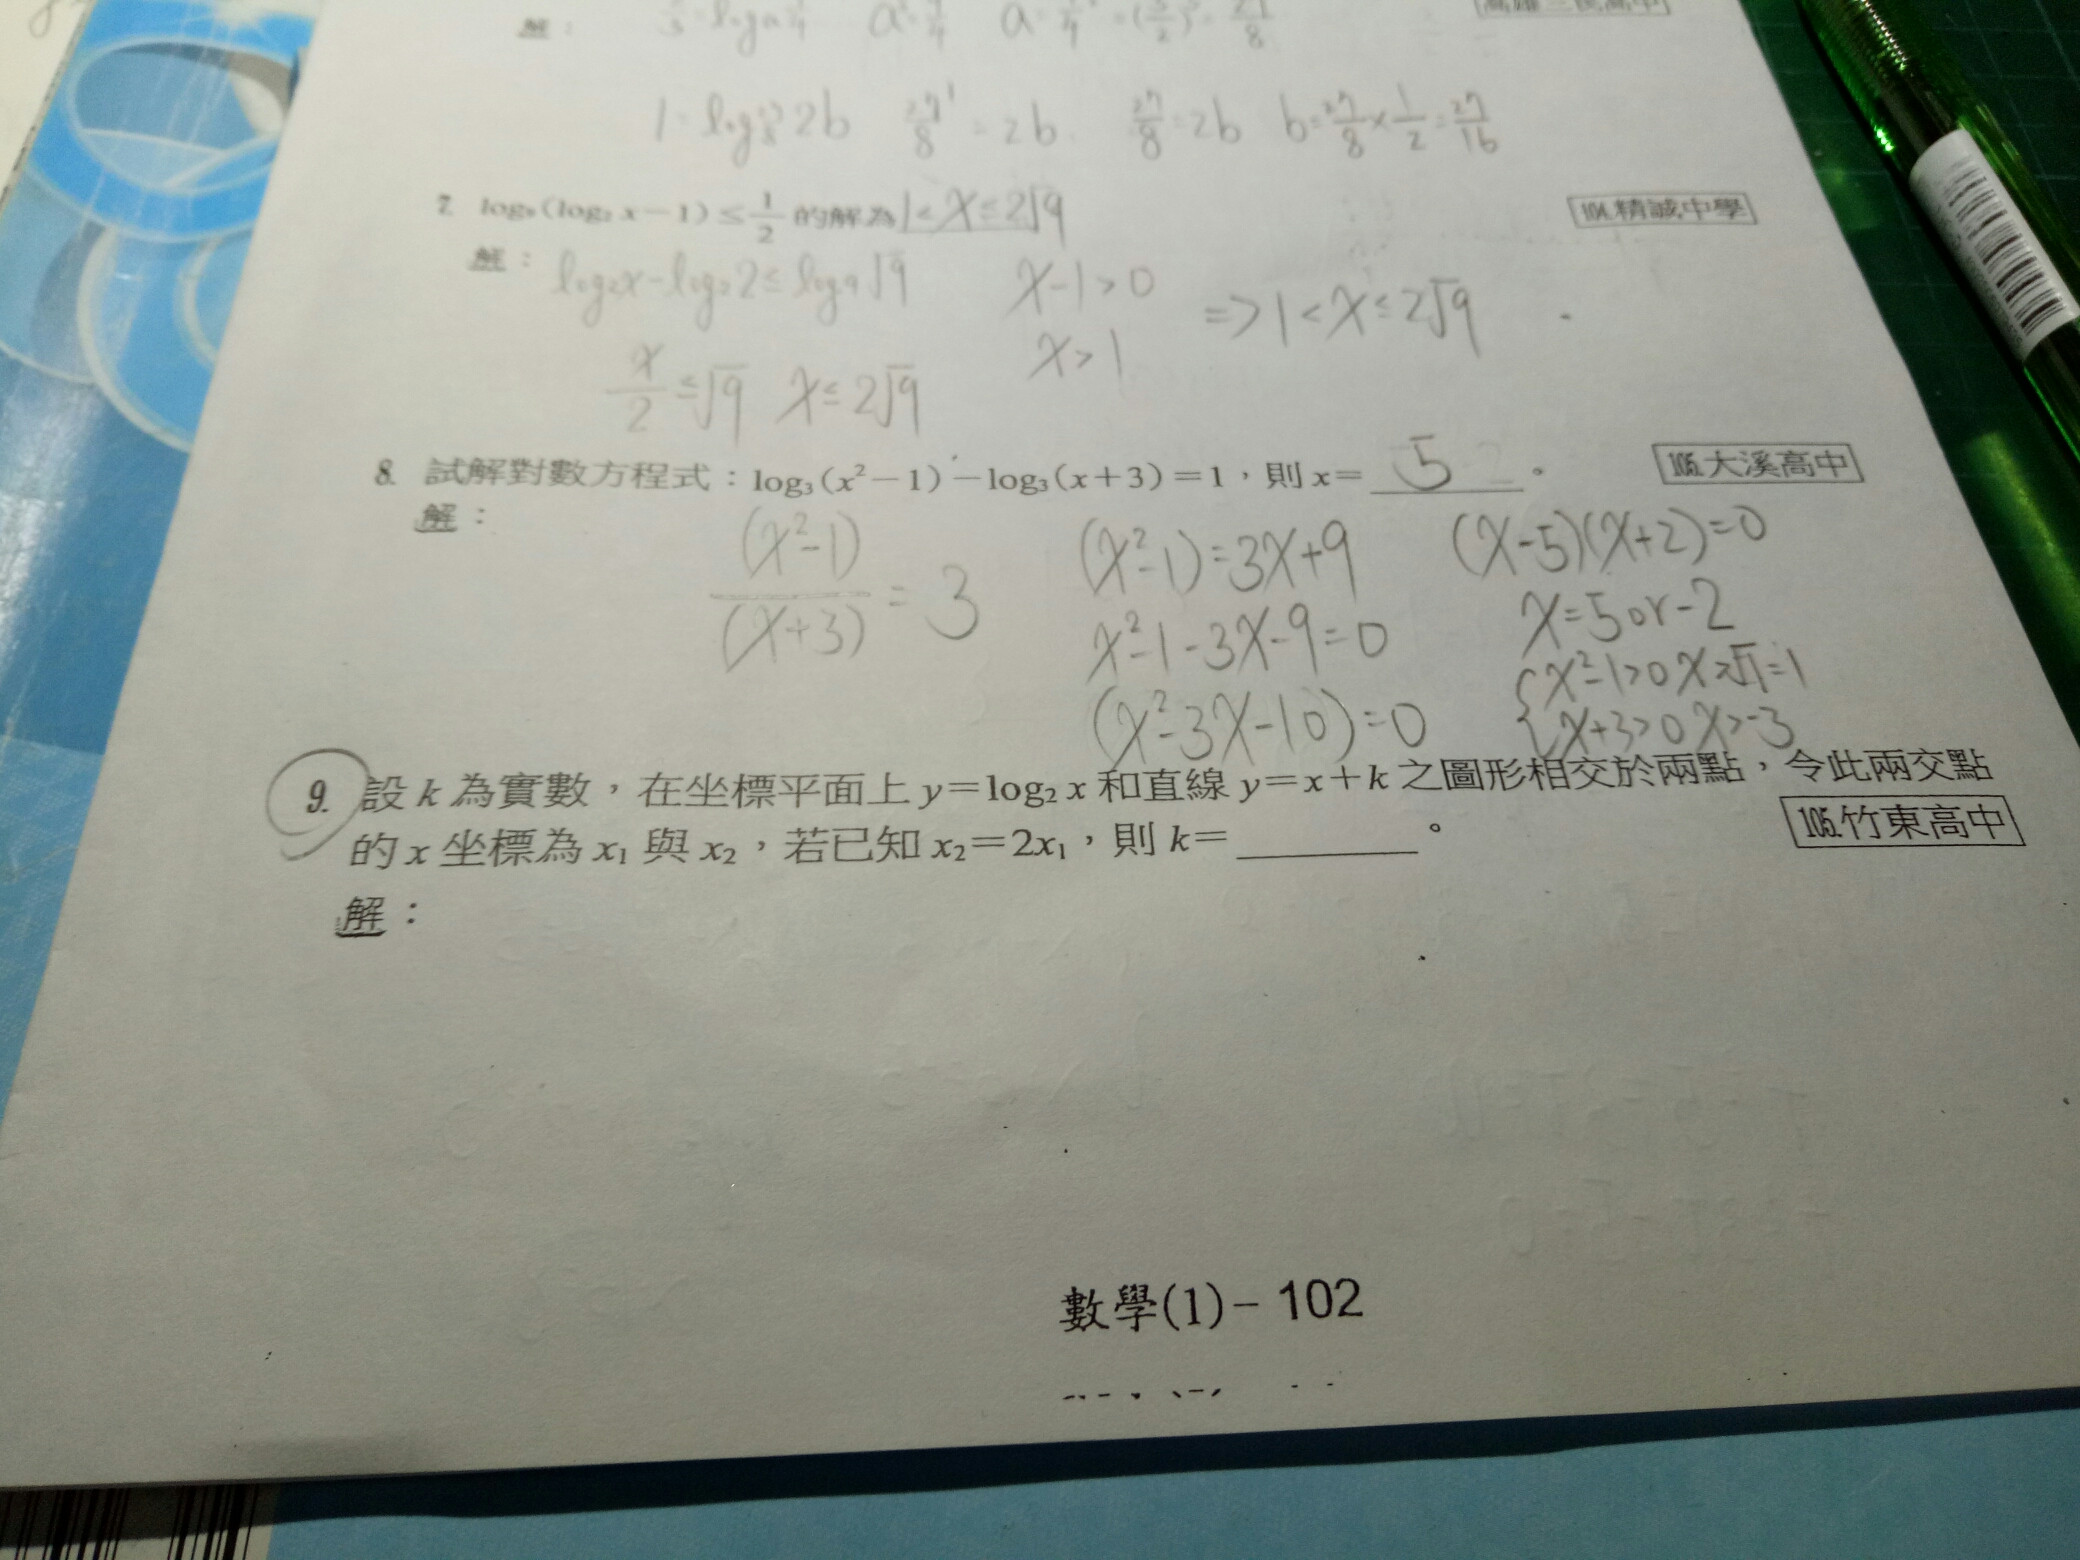 解：
1=log 27/8 2b 27/8¹=2b 27/8=2b b=27/8×1/2=27/16
7. log₉(log₂ x－1)≤1/2 的解為 1<x≤2√9 104.精誠中學
解： log₂x-log₂2≤log9√9 x-1>0 =>1<x≤2√9
x/2≤√9 x≤2√9 x>1
8. 試解對數方程式：log₃(x²－1)－log₃(x＋3)＝1，則 x＝ 5 。 106.大溪高中
解：
(x²-1)/(x+3)=3 (x²-1)=3x+9 (x-5)(x+2)=0
x²-1-3x-9=0 x=5 or -2
(x²-3x-10)=0 { x²-1>0 x>√1=1
x+3>0 x>-3
9. 設 k 為實數，在坐標平面上 y＝log₂ x 和直線 y＝x＋k 之圖形相交於兩點，令此兩交點
的 x 坐標為 x₁ 與 x₂，若已知 x₂＝2x₁，則 k＝ 。 105.竹東高中
解：
數學(1)－102